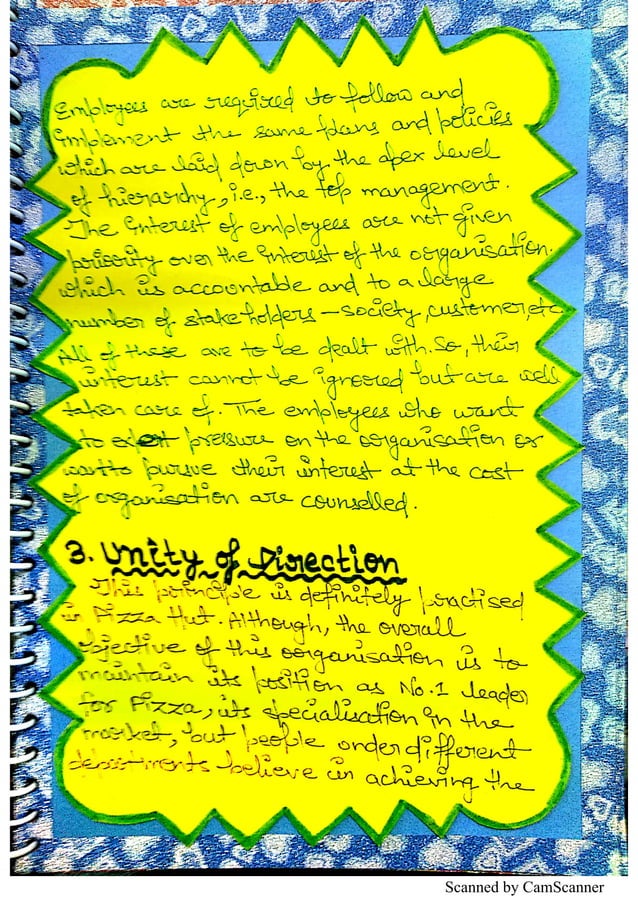 Employees are required to follow and
implement the same plans and policies
which are laid down by the apex level
of hierarchy, i.e., the top management.
The interest of employees are not given
priority over the interest of the organisation.
which is accountable and to a large
number of stakeholders – society, customer, etc.
All of these are to be dealt with. So, their
interest cannot be ignored but are well
taken care of. The employees who want
to exert pressure on the organisation or
want to pursue their interest at the cost
of organisation are counselled.
3. Unity of Direction
This principle is definitely practised
in Pizza Hut. Although, the overall
objective of this organisation is to
maintain its position as No.1 leader
for Pizza, its specialisation in the
market, but people under different
departments believe in achieving the
Scanned by CamScanner